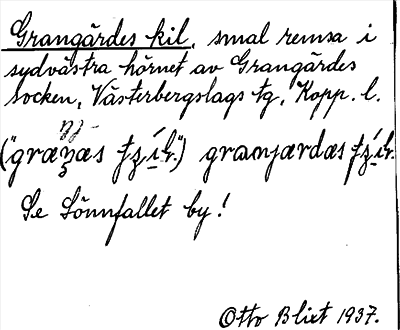 Grangärdes kil, smal remsa i
sydvästra hörnet av Grangärdes
socken, Västerbergslags tg, Kopp. l.
Se Sönnfallet by!
Otto Blixt 1937.